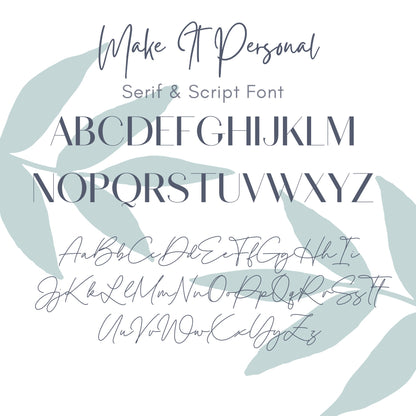 Make It Personal
Serif & Script Font
ABCDEFGHIJKLM
NOPQRSTUVWXYZ
AaBbCcDdEeFfGgHhIi
JjKkLlMmNnOoPpQqRrSsTt
UuVvWwXxYyZz